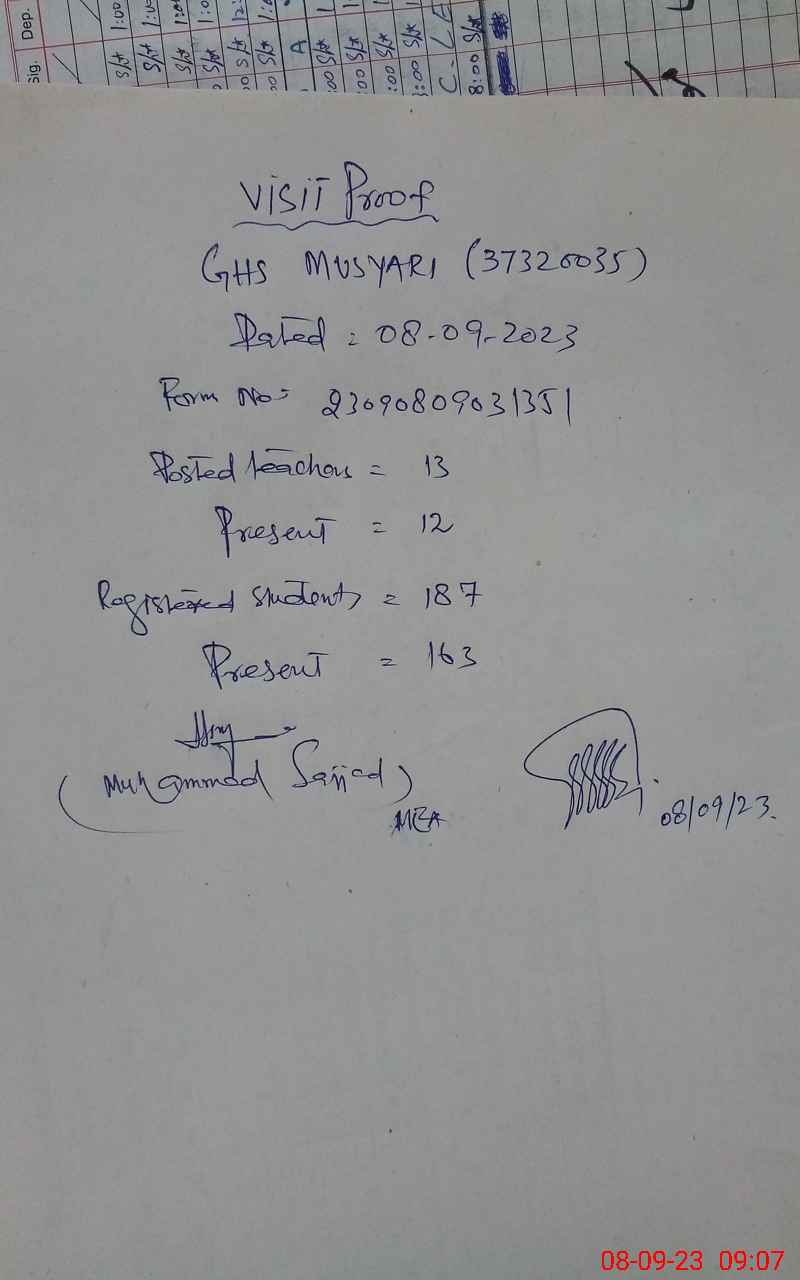 Sig. Dep.
1:00
A
C-LE
8:00
Visit Proof
GHS MUSYARI (37320035)
Dated = 08-09-2023
Form No = 23090809031351
Posted teachers = 13
Present = 12
Registered students = 187
Present = 163
(Muhammad Sajjad)
MEA
08/09/23.
08-09-23 09:07